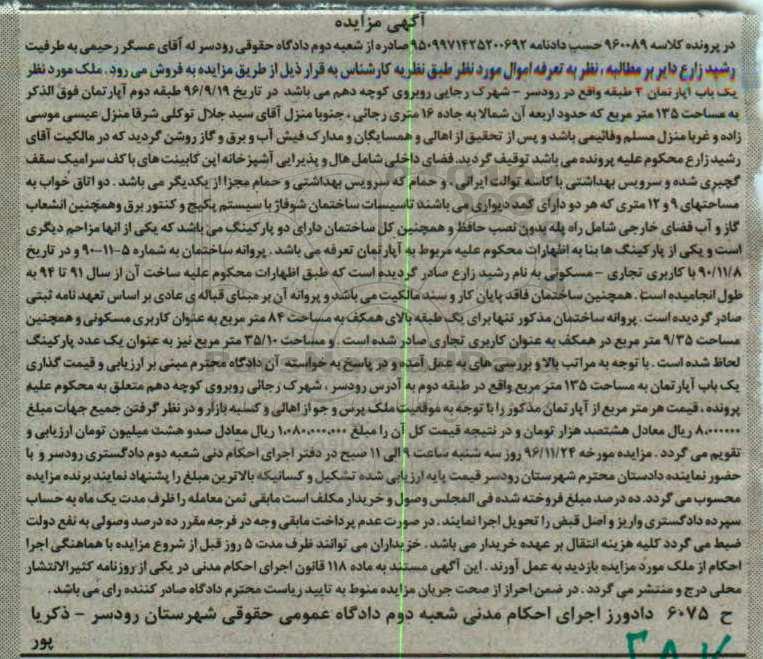 آگهی مزایده
در پرونده کلاسه ۹۶۰۰۸۹ حسب دادنامه ۹۵۰۹۹۷۱۴۲۵۲۰۰۶۹۲ صادره از شعبه دوم دادگاه حقوقی رودسر له آقای عسگر رحیمی به طرفیت
رشید زارع دایر بر مطالبه ، نظر به تعرفه اموال مورد نظر طبق نظریه کارشناس به قرار ذیل از طریق مزایده به فروش می رود . ملک مورد نظر
یک باب آپارتمان ۲ طبقه واقع در رودسر - شهرک رجایی روبروی کوچه دهم می باشد در تاریخ ۹۶/۹/۱۹ طبقه دوم آپارتمان فوق الذکر
به مساحت ۱۳۵ متر مربع که حدود اربعه آن شمالا به جاده ۱۶ متری رجائی ، جنوبا منزل آقای سید جلال توکلی شرقا منزل عیسی موسی
زاده و غربا منزل مسلم وفائیمی باشد و پس از تحقیق از اهالی و همسایگان و مدارک فیش آب و برق و گاز روشن گردید که در مالکیت آقای
رشید زارع محکوم علیه پرونده می باشد توقیف گردید. فضای داخلی شامل هال و پذیرایی آشپزخانه اپن کابینت های با کف سرامیک سقف
گچبری شده و سرویس بهداشتی با کاسه توالت ایرانی ، و حمام که سرویس بهداشتی و حمام مجزا از یکدیگر می باشد . دو اتاق خواب به
مساحتهای ۹ و ۱۲ متری که هر دو دارای کمد دیواری می باشند تاسیسات ساختمان شوفاژ با سیستم پکیج و کنتور برق وهمچنین انشعاب
گاز و آب فضای خارجی شامل راه پله بدون نصب حافظ و همچنین کل ساختمان دارای دو پارکینگ می باشد که یکی از انها مزاحم دیگری
است و یکی از پارکینگ ها بنا به اظهارات محکوم علیه مربوط به آپارتمان تعرفه می باشد . پروانه ساختمان به شماره ۵-۱۱-۹۰ و در تاریخ
۹۰/۱۱/۸ با کاربری تجاری - مسکونی به نام رشید زارع صادر گردیده است که طبق اظهارات محکوم علیه ساخت آن از سال ۹۱ تا ۹۴ به
طول انجامیده است . همچنین ساختمان فاقد پایان کار و سند مالکیت می باشد و پروانه آن بر مبنای قباله ی عادی بر اساس تعهد نامه ثبتی
صادر گردیده است . پروانه ساختمان مذکور تنها برای یک طبقه بالای همکف به مساحت ۸۴ متر مربع به عنوان کاربری مسکونی و همچنین
مساحت ۹/۳۵ متر مربع در همکف به عنوان کاربری تجاری صادر شده است . و مساحت ۳۵/۱۰ متر مربع نیز به عنوان یک عدد پارکینگ
لحاظ شده است . با توجه به مراتب بالا و بررسی های به عمل آمده و در پاسخ به خواسته آن دادگاه محترم مبنی بر ارزیابی و قیمت گذاری
یک باب آپارتمان به مساحت ۱۳۵ متر مربع واقع در طبقه دوم به آدرس رودسر ، شهرک رجائی روبروی کوچه دهم متعلق به محکوم علیه
پرونده ، قیمت هر متر مربع از آپارتمان مذکور را با توجه به موقعیت ملک پرس و جو از اهالی و کسبه بازار و در نظر گرفتن جمیع جهات مبلغ
۸،۰۰۰،۰۰۰ ریال معادل هشتصد هزار تومان و در نتیجه قیمت کل آن را مبلغ ۱،۰۸۰،۰۰۰،۰۰۰ ریال معادل صدو هشت میلیون تومان ارزیابی و
تقویم می گردد . مزایده مورخه ۹۶/۱۱/۲۴ روز سه شنبه ساعت ۹ الی ۱۱ صبح در دفتر اجرای احکام دنی شعبه دوم دادگستری رودسر و با
حضور نماینده دادستان محترم شهرستان رودسر قیمت پایه ارزیابی شده تشکیل و کسانیکه بالاترین مبلغ را پیشنهاد نمایند برنده مزایده
محسوب می گردد. ده درصد مبلغ فروخته شده فی المجلس وصول و خریدار مکلف است مابقی ثمن معامله را ظرف مدت یک ماه به حساب
سپرده دادگستری واریز و اصل قبض را تحویل اجرا نمایند . در صورت عدم پرداخت مابقی وجه در فرجه مقرر ده درصد وصولی به نفع دولت
ضبط می گردد کلیه هزینه انتقال بر عهده خریدار می باشد . خریداران می توانند ظرف مدت ۵ روز قبل از شروع مزایده با هماهنگی اجرا
احکام از ملک مورد مزایده بازدید به عمل آورند . این آگهی مستند به ماده ۱۱۸ قانون اجرای احکام مدنی در یکی از روزنامه کثیرالانتشار
محلی درج و منتشر می گردد . در ضمن احراز از صحت جریان مزایده منوط به تایید ریاست محترم دادگاه صادر کننده رای می باشد .
ح ۶۰۷۵ دادورز اجرای احکام مدنی شعبه دوم دادگاه عمومی حقوقی شهرستان رودسر - ذکریا
پور